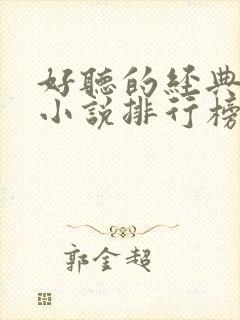 好聽的經典
小說排行榜
郭金超